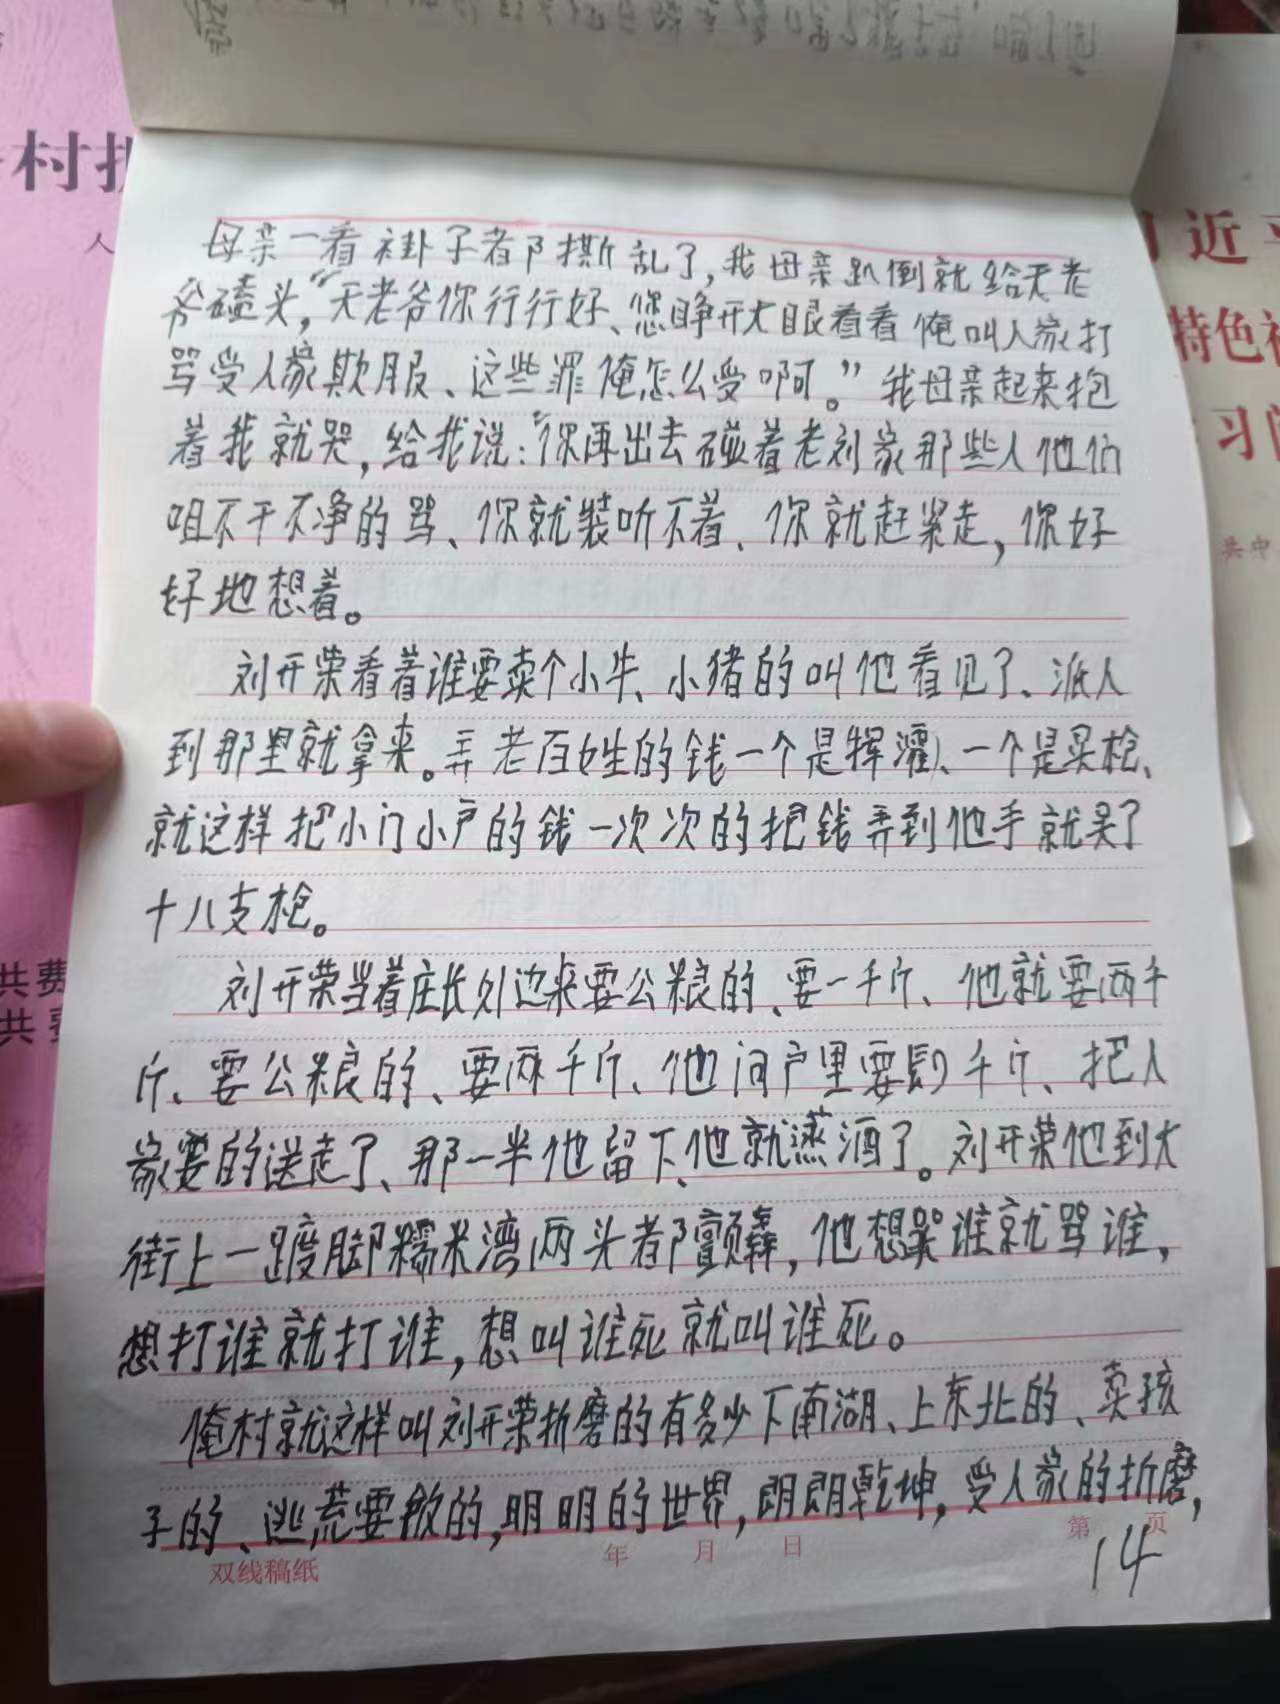 村
人
共费
共
近平
特色
习
共中
母亲一看褂子都撕乱了，我母亲趴倒就给天老
爷磕头，“天老爷你行行好、您睁开大眼看看俺叫人家打
骂受人家欺服、这些罪俺怎么受啊。”我母亲起来抱
着我就哭，给我说：“你再出去碰着老刘家那些人他们
咀不干不净的骂、你就装听不着、你就赶紧走，你好
好地想着。
刘开荣看着谁要卖个小牛、小猪的叫他看见了、派人
到那里就拿来。弄老百姓的钱一个是挥濯、一个是买枪、
就这样把小门小户的钱一次次的把钱弄到他手就买了
十八支枪。
刘开荣当着庄长外边来要公粮的、要一千斤、他就要两千
斤、要公粮的、要两千斤、他问户里要四千斤、把人
家要的送走了、那一半他留下、他就蒸酒了。刘开荣他到大
街上一跺脚糯米湾两头都颤，他想骂谁就骂谁，
想打谁就打谁，想叫谁死就叫谁死。
俺村就这样叫刘开荣折磨的有多少下南湖、上东北的、卖孩
子的、逃荒要飯的，明明的世界，朗朗乾坤，受人家的折磨，
双线稿纸 年 月 日 第 页
14